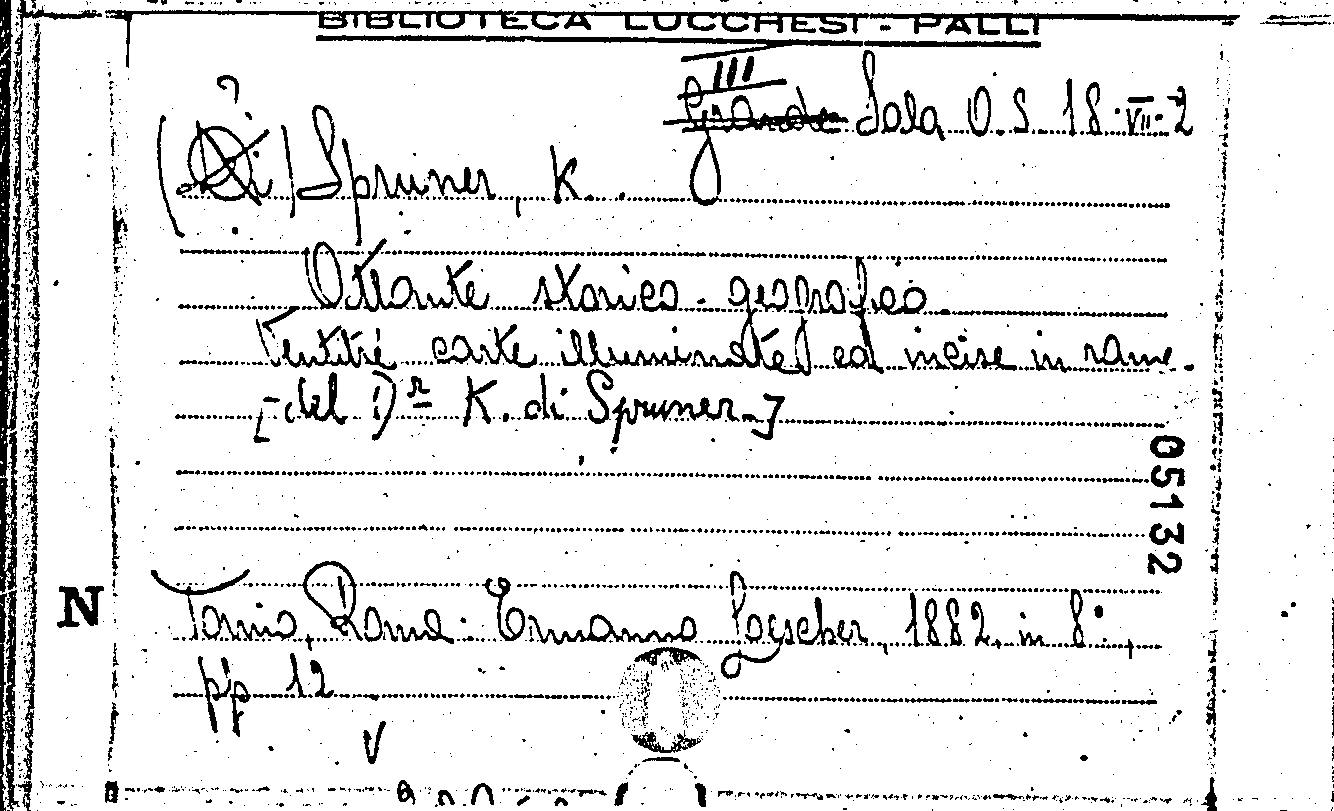 BIBLIOTECA LUCCHESI - PALLI
III
Grande Sala O.S. 18.VII.2
?
(Di) Spruner, K.
Atlante storico-geografico.
Ventitré carte illuminate ed incise in rame.
[-del Dr K. di Spruner-]
05132
N
Torino, Roma. Ermanno Loescher, 1882, in 8°.,
pp 12
V